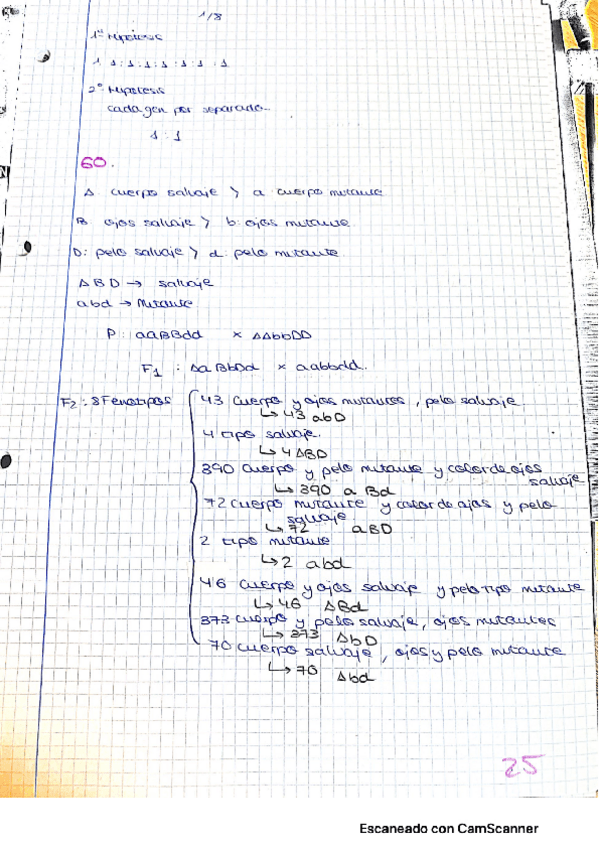 1/8
1ª Hipotesis
1 1:1:1:1:1:1:1
2º Hipotesis
cada gen por separado...
1:1
60.
A cuerpo salvaje > a cuerpo mutante
B ojos salvaje > b: ojos mutante
D: pelo salvaje > d: pelo mutante
ABD → salvaje
abd → Mutante
P: aaBBdd × AAbbDD
F1 : AaBbDd × aabbdd.
F2: 8 Fenotipos
43 Cuerpo y ojos mutantes, pelo salvaje
↳ 43 abD
4 tipo salvaje.
↳ 4 ABD
390 Cuerpo y pelo mutante y color de ojos
salvaje
↳ 390 a Bd
72 cuerpo mutante y color de ojos y pelo
salvaje
↳ 72 aBD
2 tipo mutante
↳ 2 abd
46 Cuerpo y ojos salvaje y pelo tipo mutante
↳ 46 ABd
373 cuerpo y pelo salvaje, ojos mutantes
↳ 373 AbD
70 cuerpo salvaje, ojos y pelo mutante
↳ 70 Abd
25
Escaneado con CamScanner